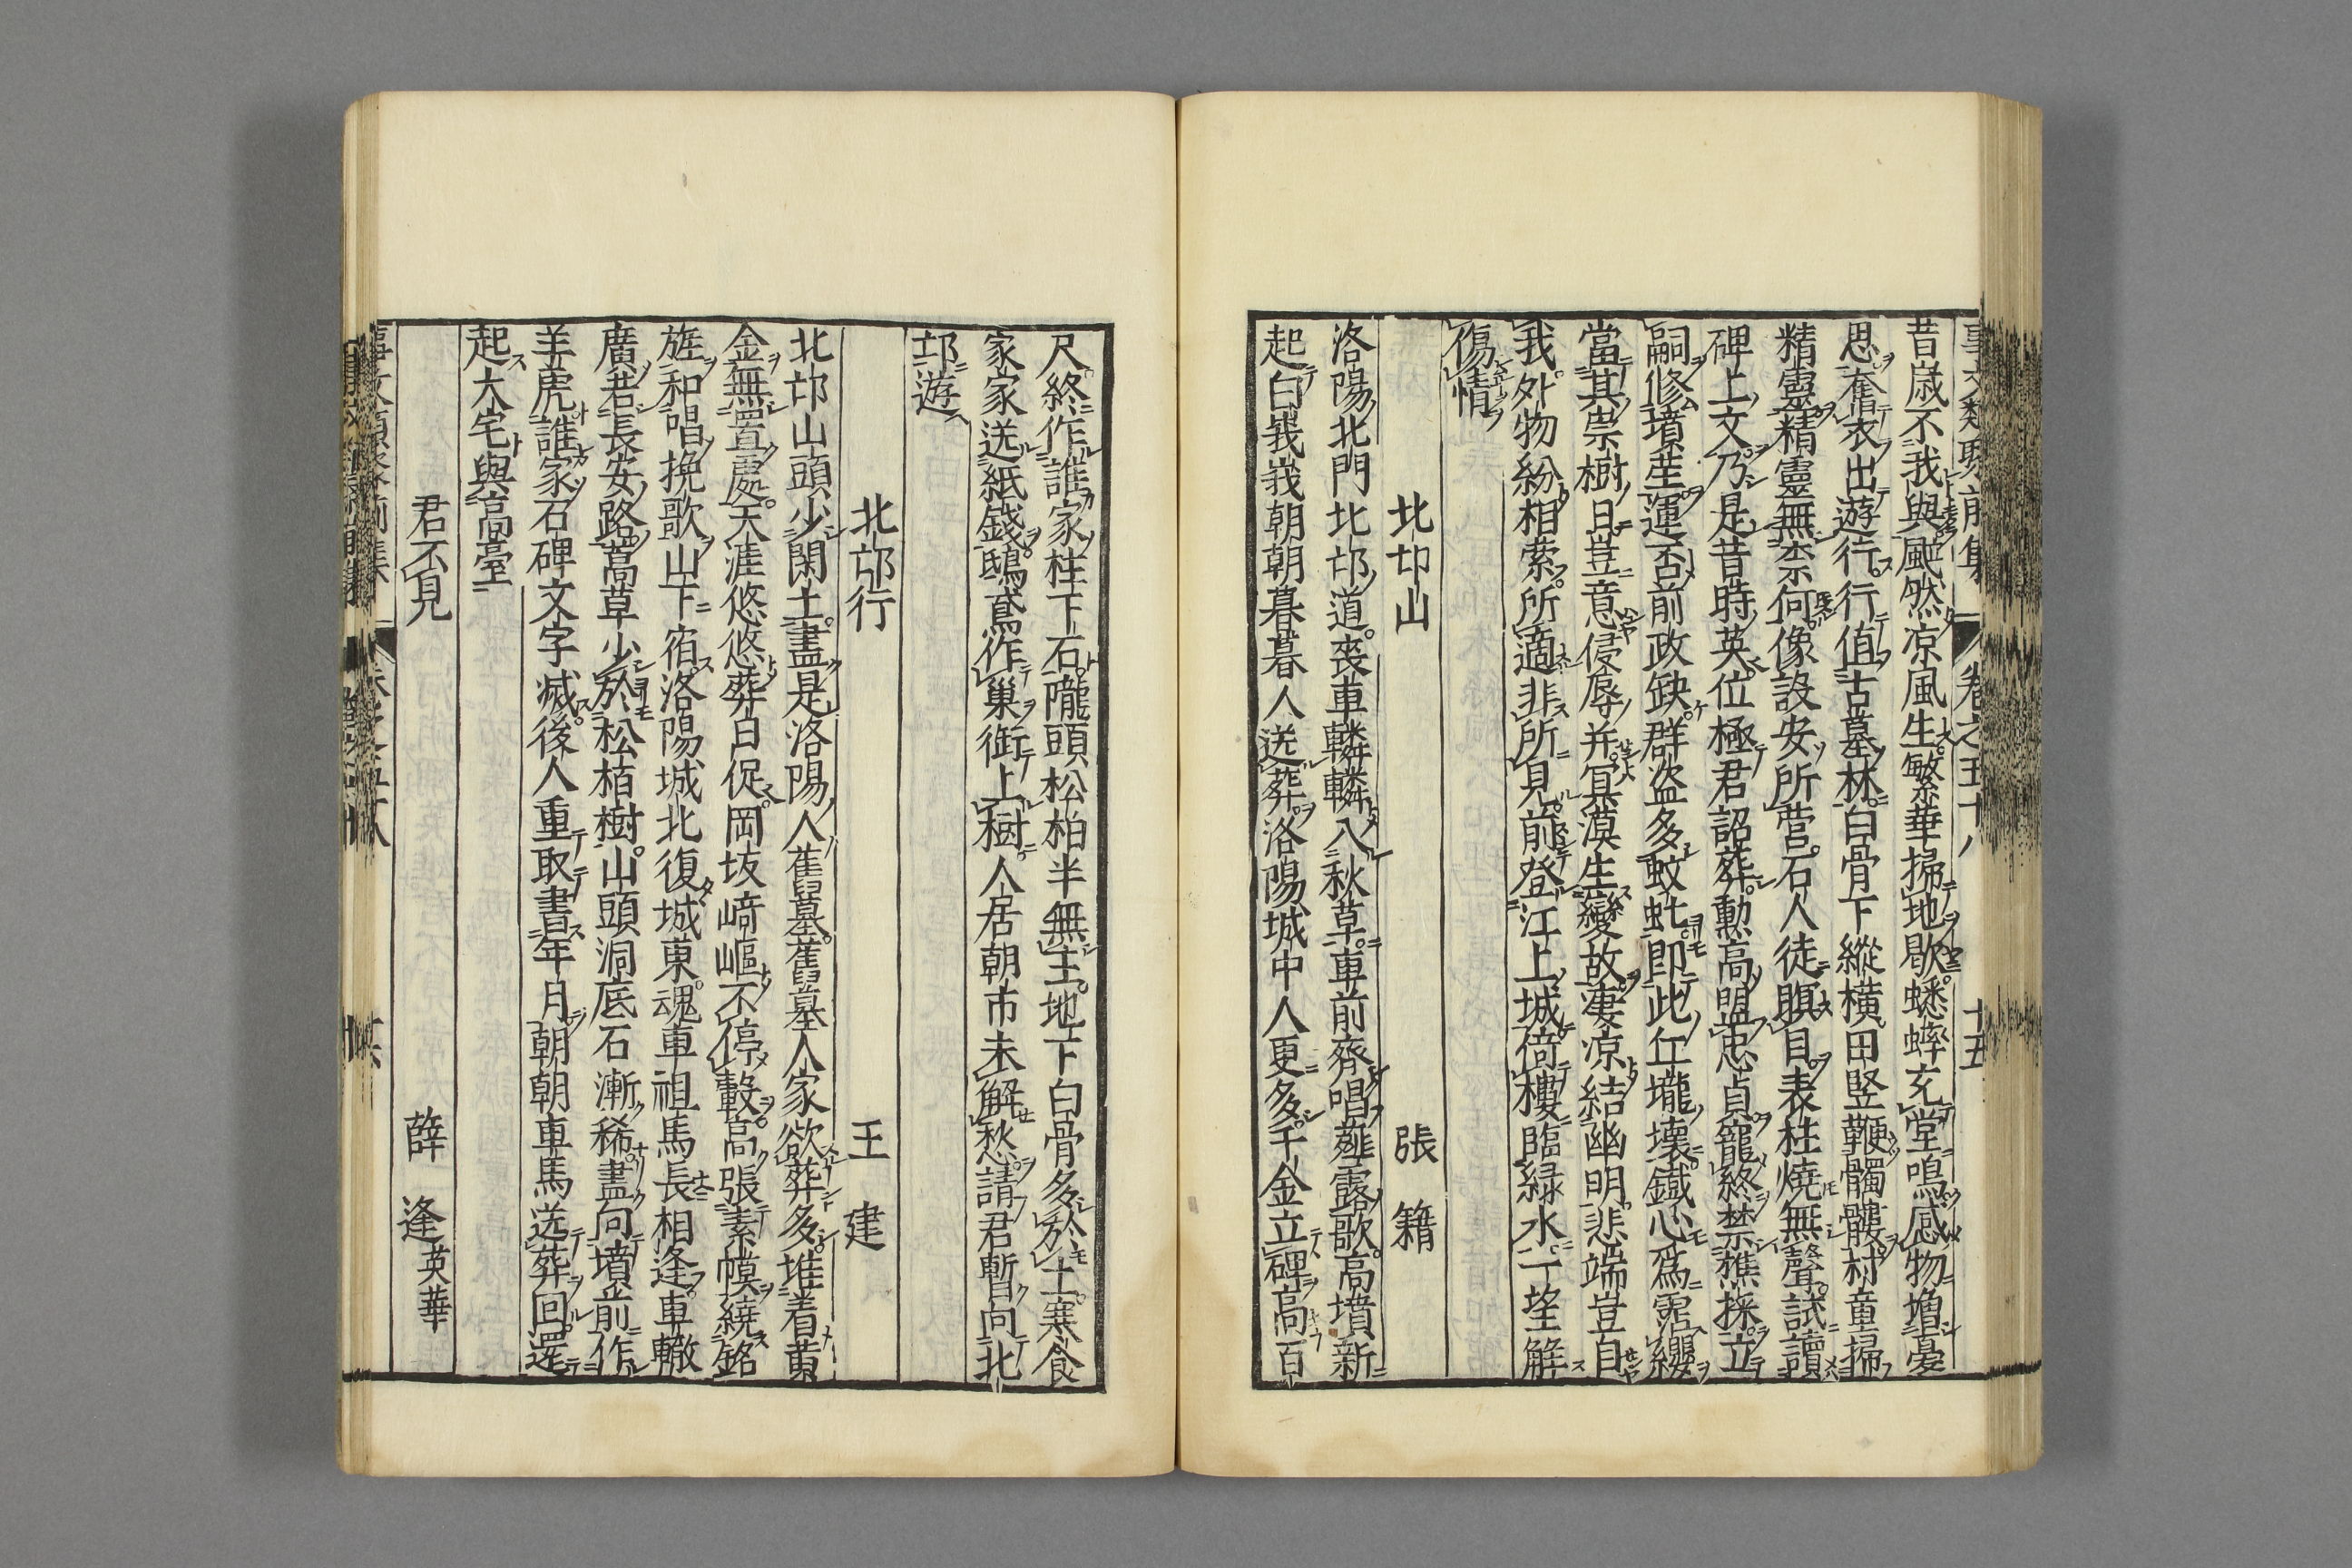 事文類聚前集 卷之五十八 十五
昔歳不我與颯然凉風生繁華掃地歇蟋蟀玄堂鳴感物増憂
思奮衣出遊行行值古墓林白骨下縱横田竪鞭髑髏村童掃
精靈精靈無柰何像設安所营石人徒瞑目表柱燒無聲試讀
碑上文乃是昔時英位極君詔葬勲高盟忠貞寵終禁樵採立
嗣修墳塋運否前政缺群盗多蚊虻即此丘壠壊鐵心爲霑纓
當其崇樹日豈意侵辱并冥漠生變故凄凉結幽明悲端豈自
我外物紛相縈所適非所見前登江上城倚樓臨緑水一望解
傷情
北邙山 張籍
洛陽北門北邙道喪車轔轔入秋草車前齊唱薤露歌高墳新
起白峩峩朝朝暮暮人送葬洛陽城中人更多千金立碑高百
尺終作誰家柱下石隴頭松柏半無主地下白骨多於土寒食
家家送紙錢鴟鳶作巢銜上樹人居朝市未解愁請君暫向北
邙遊
北邙行 王建
北邙山頭少閑土盡是洛陽人舊墓舊墓人家欲葬多堆着黄
金無置處天涯悠悠葬日促岡坂﨑嶇不停轂高張素幙繞銘
旌和唱挽歌山下宿洛陽城北復城東魂車祖馬長相逢車轍
廣若長安路蒿草少於松栢樹山頭洞底石漸稀盡向墳前作
羊虎誰家石碑文字滅後人重取書年月朝朝車馬送葬回還
起大宅與高臺
君不見 薛逢英華